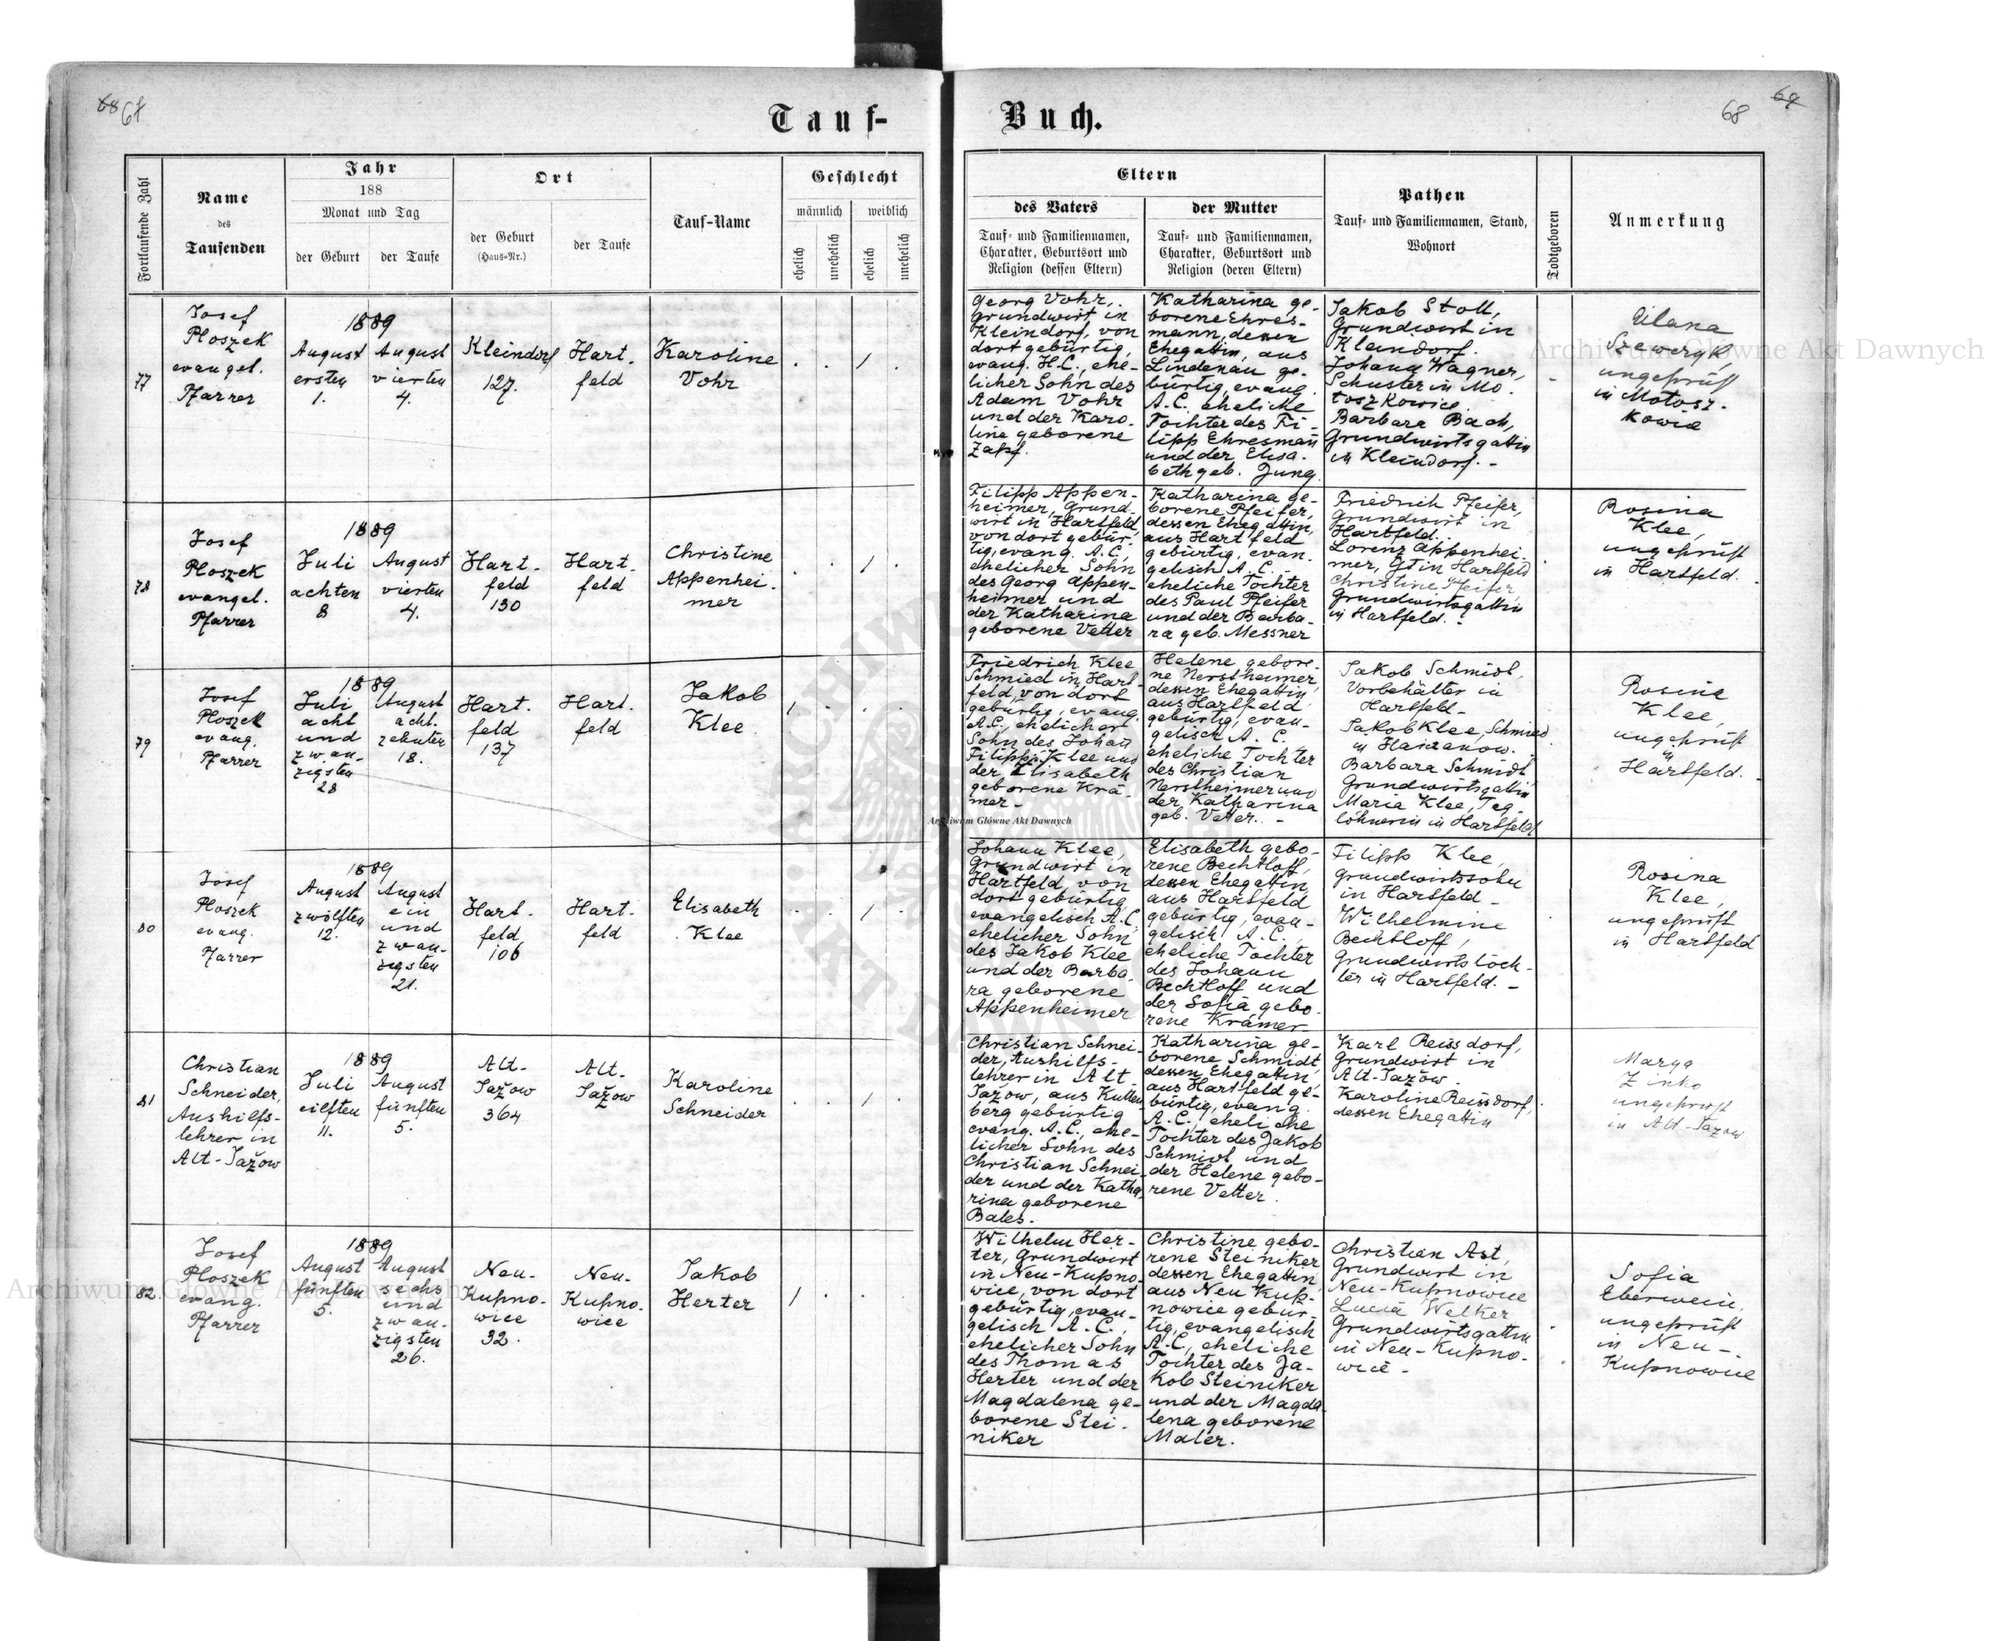 68 67
68 69
Tauf-
Buch.
Fortlaufende Zahl
Name
des
Taufenden
Jahr
188
Monat und Tag
der Geburt
der Taufe
Ort
der Geburt
(Haus-Nr.)
der Taufe
Tauf-Name
Geschlecht
männlich
weiblich
ehelich
unehelich
ehelich
unehelich
Eltern
des Vaters
Tauf- und Familiennamen,
Charakter, Geburtsort und
Religion (dessen Eltern)
der Mutter
Tauf- und Familiennamen,
Charakter, Geburtsort und
Religion (deren Eltern)
Pathen
Tauf- und Familiennamen, Stand,
Wohnort
Todtgeboren
Anmerkung
77
Josef
Ploszek
evangel.
Pfarrer
1889
August
ersten
1.
August
vierten
4.
Kleindorf
127.
Hart-
feld
Karoline
Vohr
Georg Vohr,
Grundwirt in
Kleindorf, von
dort gebürtig,
evang. H.C., ehe-
licher Sohn des
Adam Vohr
und der Karo-
line geborene
Zapf.
Katharina ge-
borene Ehres-
mann, dessen
Ehegattin, aus
Lindenau ge-
bürtig, evang.
A.C. eheliche
Tochter des Fi-
lipp Ehresmañ
und der Elisa-
beth geb. Jung.
Jakob Stoll,
Grundwirt in
Kleindorf.
Johann Wagner,
Schuster in Mo-
toszkowice
Barbara Bach,
Grundwirtsgattin
in Kleindorf. -
Ulana
Szeweryk,
ungeprüft
in Motosz-
kowice
78
Josef
Ploszek
evangel.
Pfarrer
1889
Juli
achten
8
August
vierten
4.
Hart-
feld
130
Hart-
feld
Christine
Appenhei-
mer
Filipp Appen-
heimer, Grund-
wirt in Hartfeld,
von dort gebür-
tig, evang. A.C.,
ehelicher Sohn
des Georg Appen-
heimer und
der Katharina
geborene Vetter
Katharina ge-
borene Pfeifer,
dessen Ehegattin,
aus Hartfeld
gebürtig, evan-
gelisch A.C. -
eheliche Tochter
des Paul Pfeifer
und der Barba-
ra geb. Messner
Friedrich Pfeifer,
Grundwirt in
Hartfeld.
Lorenz Appenhei-
mer, Gt in Hartfeld
Christine Pfeifer,
Grundwirtsgattin
in Hartfeld. -
Rosina
Klee,
ungeprüft
in Hartfeld.
79
Josef
Ploszek
evang.
Pfarrer
1889
Juli
acht
und
zwan-
zigsten
28
August
acht-
zehnten
18.
Hart-
feld
137
Hart-
feld
Jakob
Klee
Friedrich Klee
Schmied in Hart-
feld, von dort
gebürtig, evang.
A.C., ehelicher
Sohn des Johañ
Filipp Klee und
der Elisabeth
geborene Krä-
mer -
Helene gebore-
ne Nerstheimer,
dessen Ehegattin
aus Hartfeld
gebürtig, evan-
gelisch A.C.
eheliche Tochter
des Christian
Nerstheimer und
der Katharina
geb. Vetter. -
Jakob Schmidt,
Vorbehälter in
Hartfeld -
Jakob Klee, Schmied
Barbara Schmidt
Grundwirtsgattin
Maria Klee, Tag-
löhnerin in Hartfeld
Rosina
Klee,
ungeprüft
in
Hartfeld.
80
Josef
Ploszek
evang.
Pfarrer
1889
August
zwölften
12.
August
ein
und
zwan-
zigsten
21.
Hart-
feld
106
Hart-
feld
Elisabeth
Klee
Johann Klee,
Grundwirt in
Hartfeld, von
dort gebürtig,
evangelisch A.C.
ehelicher Sohn
des Jakob Klee
und der Barba-
ra geborene
Appenheimer
Elisabeth gebo-
rene Bechtloff,
dessen Ehegattin,
aus Hartfeld
gebürtig, evan-
gelisch A.C.
eheliche Tochter
des Johann
Bechtloff und
der Sofia gebo-
rene Krämer
Filipp Klee,
Grundwirtssohn
in Hartfeld -
Wilhelmine
Bechtloff,
Grundwirtstöch-
ter in Hartfeld. -
Rosina
Klee,
ungeprüft
in Hartfeld
81
Christian
Schneider,
Aushilfs-
lehrer in
Alt-Jažow
1889
Juli
eilften
11.
August
fünften
5.
Alt-
Jažow
364
Alt-
Jažow
Karoline
Schneider
Christian Schnei-
der, Aushilfs-
lehrer in Alt-
Jažow, aus Kutten-
berg gebürtig
evang. A.C., ehe-
licher Sohn des
Christian Schnei-
der und der Katha-
rina geborene
Bales.
Katharina ge-
borene Schmidt
dessen Ehegattin,
aus Hartfeld ge-
bürtig, evang.
A.C., eheliche
Tochter des Jakob
Schmidt und
der Helene gebo-
rene Vetter.
Karl Reissdorf,
Grundwirt in
Alt-Jažow.
Karoline Reissdorf,
dessen Ehegattin
Marya
Zinko
ungeprüft
in Alt-Jazow
82
Josef
Ploszek
evang.
Pfarrer
1889
August
fünften
5.
August
sechs
und
zwan-
zigsten
26.
Neu-
Kupno-
wice
32.
Neu-
Kupno-
wice
Jakob
Herter
Wilhelm Her-
ter, Grundwirt
in Neu-Kupno-
wice, von dort
gebürtig, evan-
gelisch A.C.,
ehelicher Sohn
des Thomas
Herter und der
Magdalena ge-
borene Stei-
niker
Christine gebo-
rene Steiniker
dessen Ehegattin
aus Neu Kup-
nowice gebür-
tig, evangelisch
A.C., eheliche
Tochter des Ja-
kob Steiniker
und der Magda-
lena geborene
Maler.
Christian Ast,
Grundwirt in
Neu-Kupnowice
Lucia Welker
Grundwirtsgattin
in Neu-Kupno-
wice -
Sofia
Eberwein,
ungeprüft
in Neu-
Kupnowice
Archiwum Główne Akt Dawnych
Archiwum Główne Akt Dawnych
Archiwum Główne Akt Dawnych